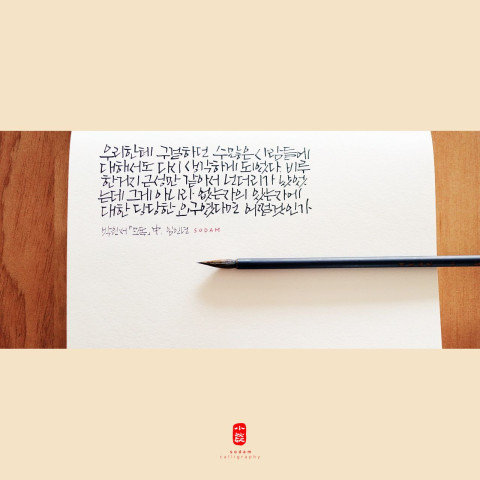 우리한테 구걸하던 수많은 사람들에
대해서도 다시 생각하게 되었다. 비루
한 거지 근성만 같아서 넌더리가 났었
는데 그게 아니라 없는 자의 있는 자에
대한 당당한 요구였다면 어쩔 것인가
SODAM
sodam
calligraphy